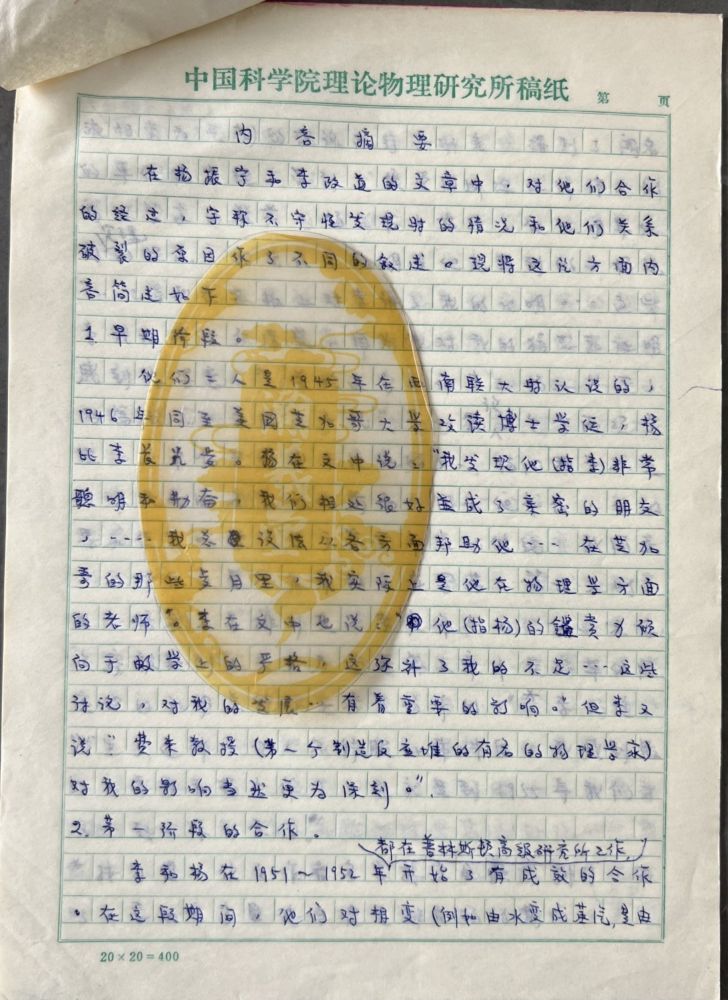 中国科学院理论物理研究所稿纸 第 页
内容摘要
在杨振宁和李政道的文章中，对他们合作
的经过，宇称不守恒发现时的情况和他们关系
破裂的原因作了不同的叙述。现将这几方面内
容简述如下
1.早期阶段。
他们二人是1945年在西南联大时认识的，
1946年同至美国芝加哥大学攻读博士学位，杨
比李长几岁。杨在文中说："我发现他(指李)非常
聪明和勤奋，我们相处很好並成了亲密的朋友
，……我总是设法从各方面帮助他……在芝加
哥的那些岁月里，我实际上是他在物理学方面
的老师"。李在文中也说："他(指杨)的鑑赏力倾
向于数学上的严格，这弥补了我的不足……这些
讨论，对我的发展…有着重要的影响。"但李又
说："费米教授(第一个制造反应堆的有名的物理学家)
对我的影响当然更为深刻。"
2.第一阶段的合作。
都在普林斯顿高级研究所工作，
李和杨在1951～1952年开始了有成效的合作
。在这段期间，他们对相变(例如由水变成蒸汽,是由
20×20=400